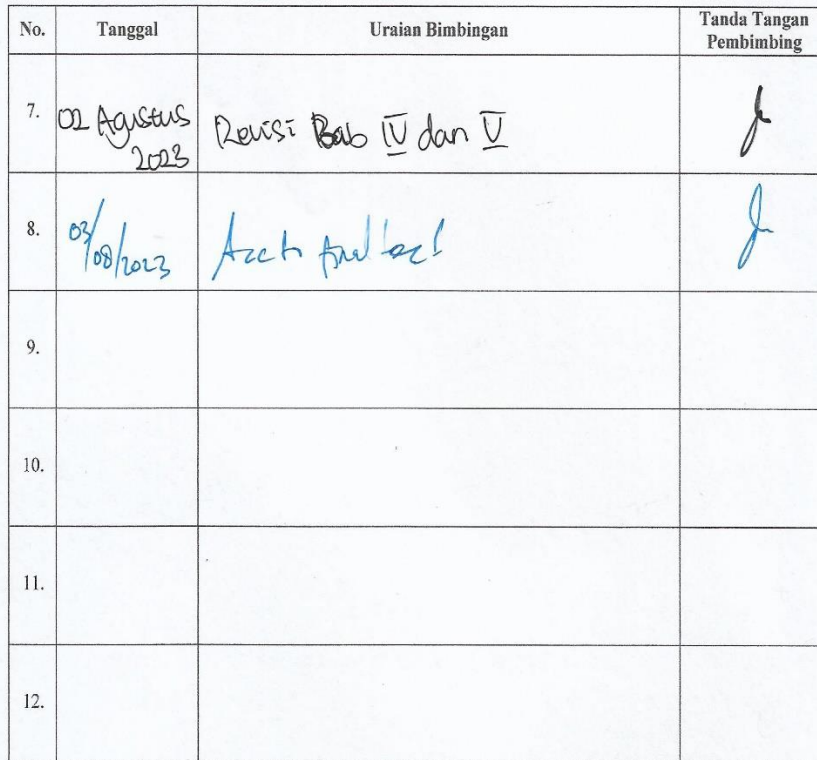 No. Tanggal Uraian Bimbingan Tanda Tangan Pembimbing
7. 02 Agustus 2023 Revisi Bab IV dan V
8. 03/08/2023
9.
10.
11.
12.